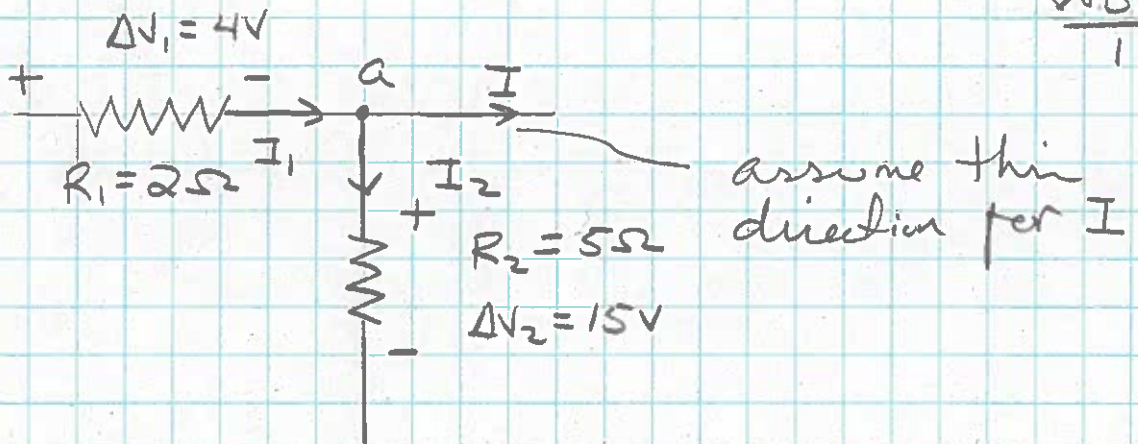 ΔV₁ = 4V
+ - a I
I₁
R₁ = 2Ω
I₂
+
R₂ = 5Ω
ΔV₂ = 15V
-
assume this
direction for I
1